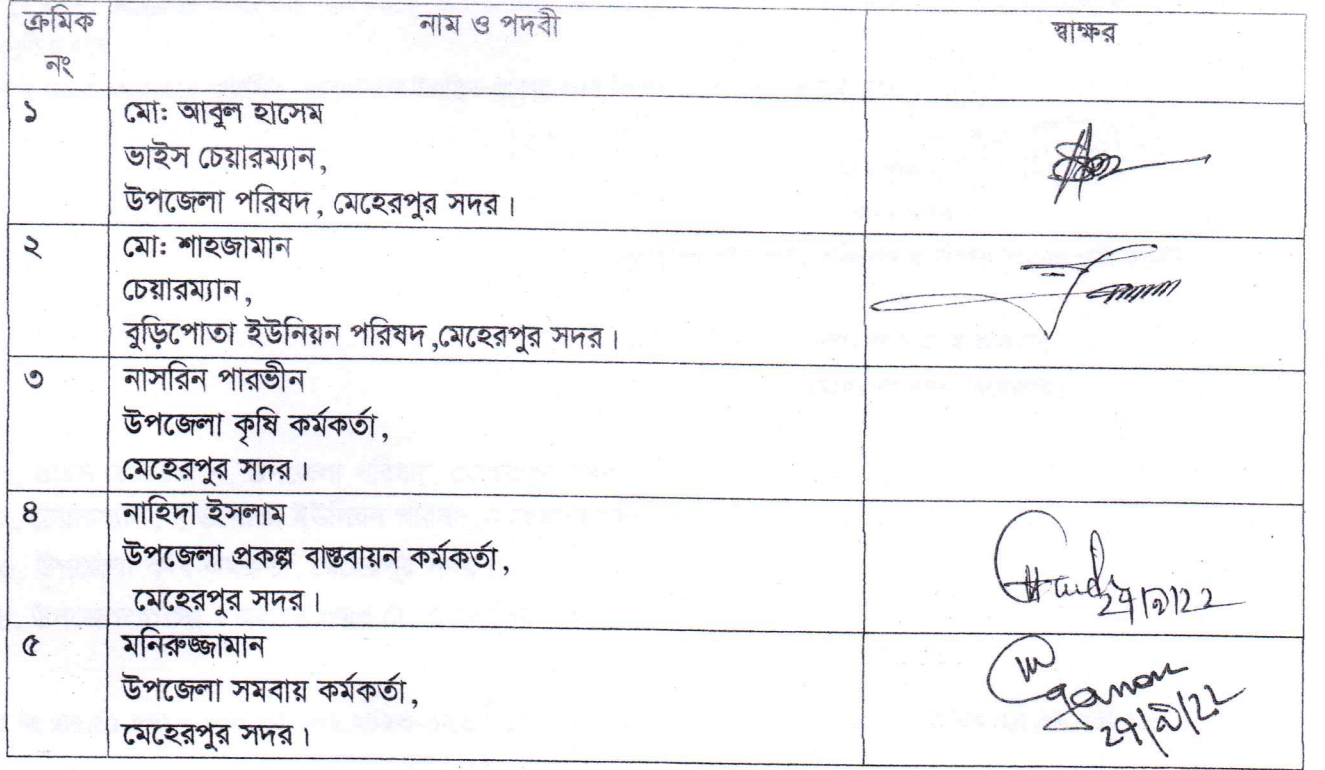 ক্রমিক নাম ও পদবী স্বাক্ষর
নং
১ মো: আবুল হাসেম
ভাইস চেয়ারম্যান,
উপজেলা পরিষদ, মেহেরপুর সদর।
২ মো: শাহজামান
চেয়ারম্যান,
বুড়িপোতা ইউনিয়ন পরিষদ,মেহেরপুর সদর।
৩ নাসরিন পারভীন
উপজেলা কৃষি কর্মকর্তা,
মেহেরপুর সদর।
৪ নাহিদা ইসলাম
উপজেলা প্রকল্প বাস্তবায়ন কর্মকর্তা,
মেহেরপুর সদর।
৫ মনিরুজ্জামান
উপজেলা সমবায় কর্মকর্তা,
মেহেরপুর সদর।